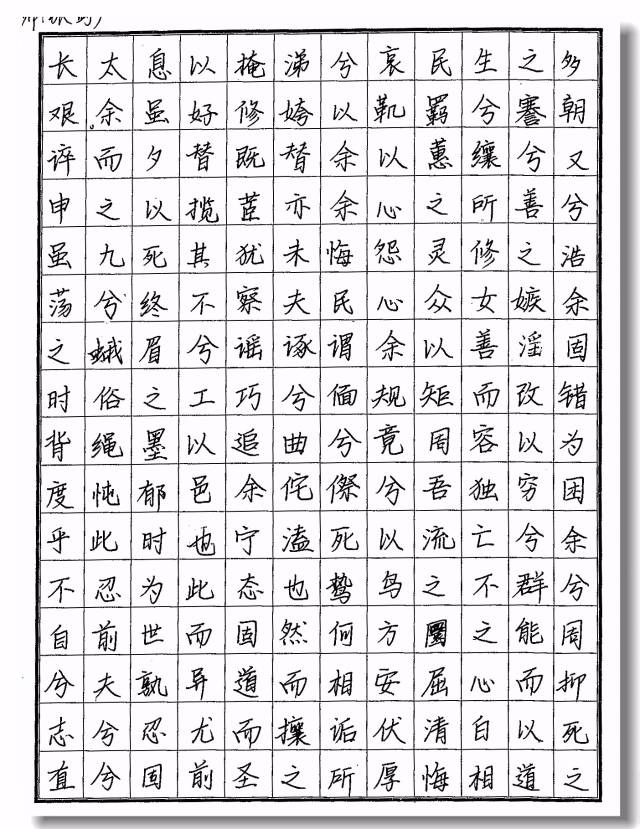 长太息以掩涕兮哀民生之多
艰余虽好修姱以鞿羁兮謇朝
谇而夕替既替余以蕙纕兮又
申之以揽茝亦余心之所善兮
虽九死其犹未悔怨灵修之浩
荡兮终不察夫民心众女嫉余
之蛾眉兮谣诼谓余以善淫固
时俗之工巧兮偭规矩而改错
背绳墨以追曲兮竞周容以为
度忳郁邑余侘傺兮吾独穷困
乎此时也宁溘死以流亡兮余
不忍为此态也鸷鸟之不群兮
自前世而固然何方圜之能周
兮夫孰异道而相安屈心而抑
志兮忍尤而攘诟伏清白以死
直兮固前圣之所厚悔相道之